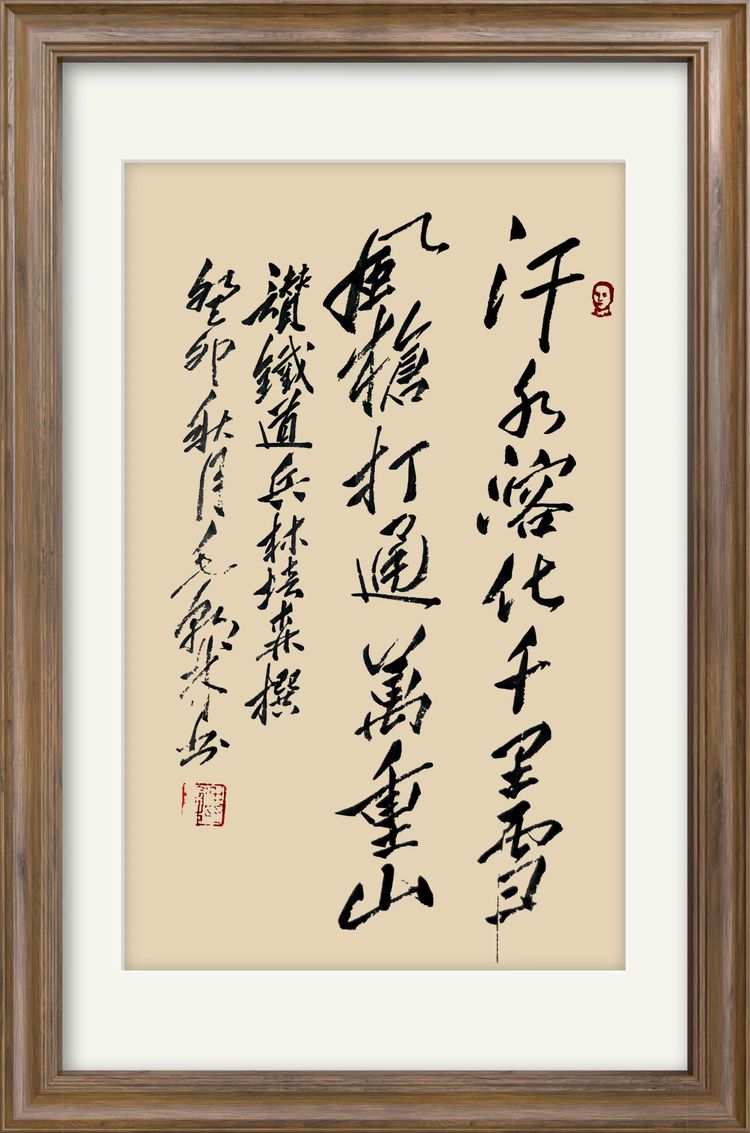 汗水溶化千里雪
風槍打通萬重山
讚鐵道兵林培森撰
癸卯秋月毛